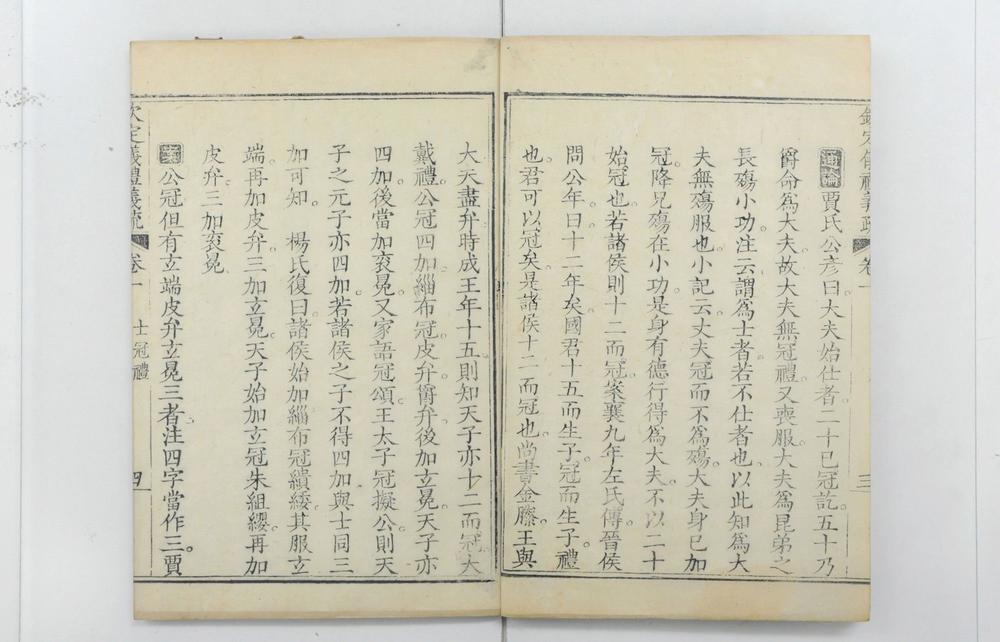 欽定儀禮義疏 卷一 三
通論 賈氏公彦曰大夫始仕者二十已冠訖五十乃
爵命爲大夫故大夫無冠禮又喪服大夫爲昆弟之
長殤小功注云謂爲士者若不仕者也以此知爲大
夫無殤服也小記云丈夫冠而不爲殤大夫身已加
冠降兄殤在小功是身有德行得爲大夫不以二十
始冠也若諸侯則十二而冠案襄九年左氏傳晉侯
問公年曰十二年矣國君十五而生子冠而生子禮
也君可以冠矣是諸侯十二而冠也尚書金縢王與
大夫盡弁時成王年十五則知天子亦十二而冠大
戴禮公冠四加緇布冠皮弁爵弁後加玄冕天子亦
四加後當加衮冕又家語冠頌王太子冠擬公則天
子之元子亦四加若諸侯之子不得四加與士同三
加可知 楊氏復曰諸侯始加緇布冠繢緌其服玄
端再加皮弁三加玄冕天子始加玄冠朱組纓再加
皮弁三加衮冕
案 公冠但有玄端皮弁玄冕三者注四字當作三賈
欽定儀禮義疏 卷一 士冠禮 四